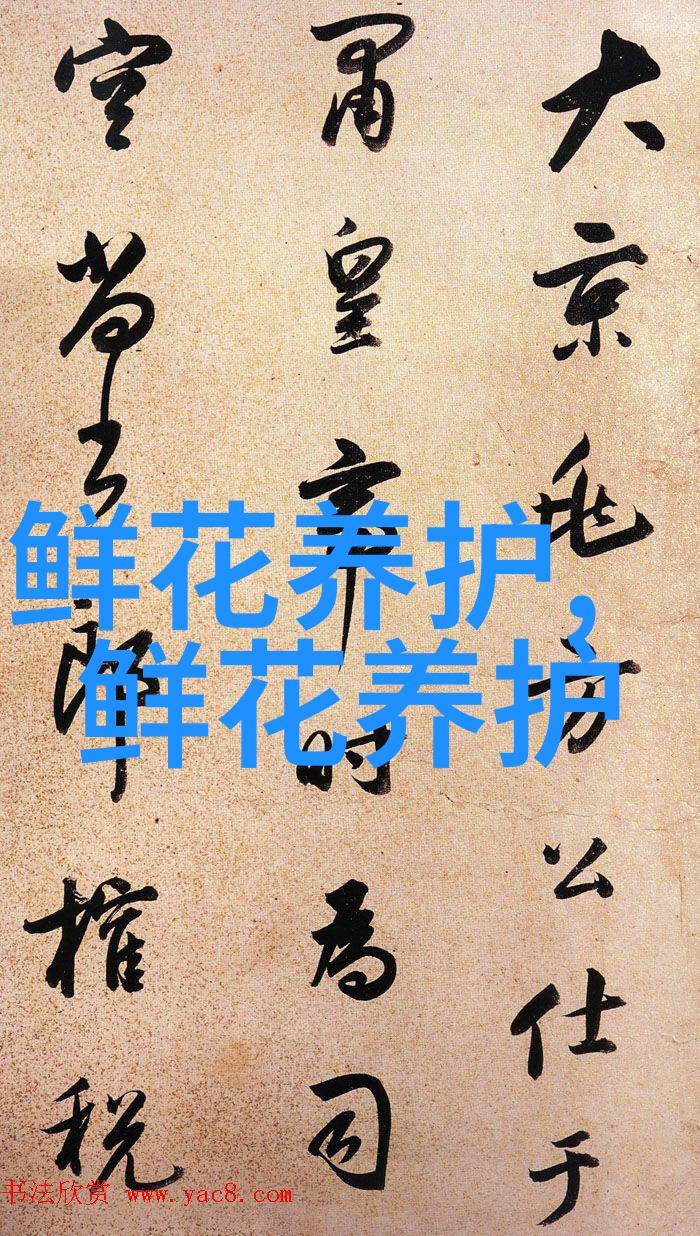 大京兆方公仕于
肅皇帝时為司
空尚书郎榷税
鲜花养护,
鲜花养护
书法欣赏 www.yac8.com